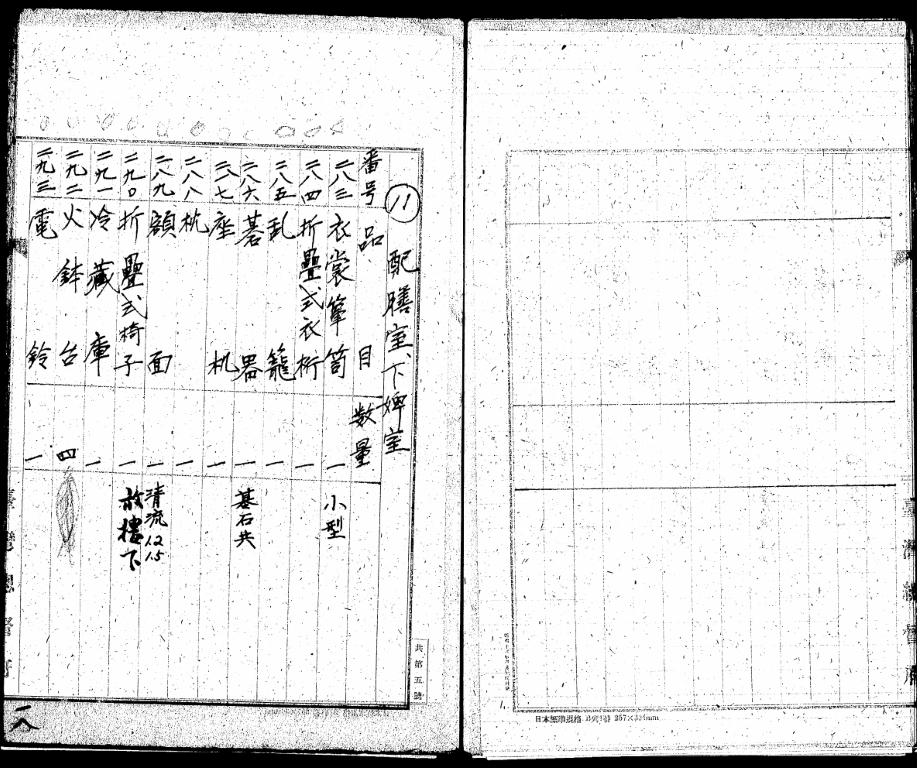 11 配膳室、下婢室
番号 品目 数量
二八三 衣裳箪笥 一 小型
二八四 折疊式衣桁 一
二八五 乱籠 一
二八六 碁器 一 碁石共
二八七 座机 一
二八八 枕 一
二八九 額面 一 清流 12 15
二九〇 折疊式椅子 一 放樓下
二九一 冷藏庫 一
二九二 火鉢台 四
二九三 電鈴 一
共第五號
臺灣總督府
一八
臺灣總督府
日本標準規格 257×364mm